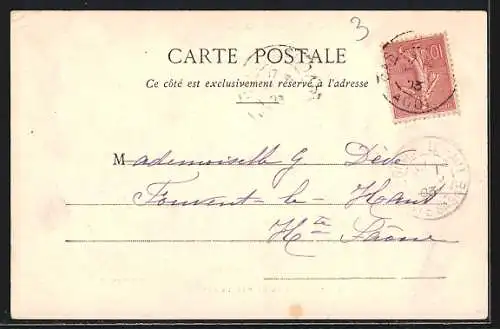 3
CARTE POSTALE
Ce côté est exclusivement réservé à l'adresse
10
03
Mademoiselle G Dède
Fouvent-le-Haut
Hte Saône